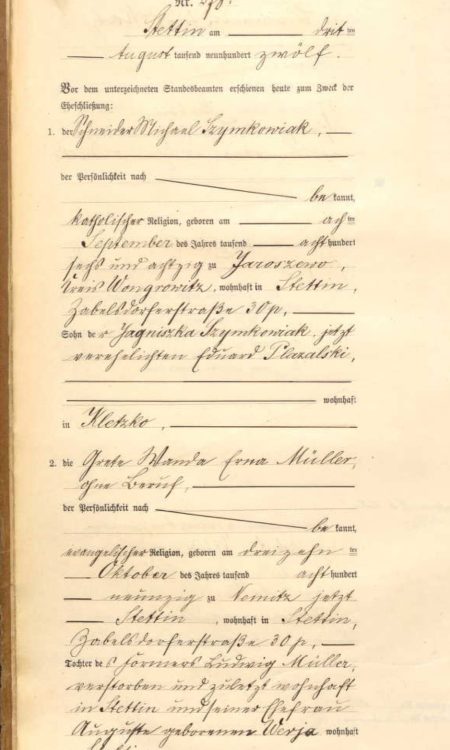 Nr. 298.
Stettin am drit ten
August tausend neunhundert zwölf.
Vor dem unterzeichneten Standesbeamten erschienen heute zum Zweck der
Eheschließung:
1. der Schneider Michael Szymkowiak,
der Persönlichkeit nach
be kannt,
katholischer Religion, geboren am ach ten
September des Jahres tausend acht hundert
sechs und achtzig zu Jaroszewo,
Kreis Wongrowitz, wohnhaft in Stettin,
Zabelsdorferstraße 30 p,
Sohn de r Jagniszka Szymkowiak, jetzt
verehelichten Eduard Plazalski,
wohnhaft
in Kletzko,
2. die Grete Wanda Erna Müller,
ohne Beruf,
der Persönlichkeit nach
be kannt,
evangelischer Religion, geboren am dreizehn ten
Oktober des Jahres tausend acht hundert
neunzig zu Nemitz jetzt
Stettin, wohnhaft in Stettin,
Zabelsdorferstraße 30 p,
Tochter de s Formers Ludwig Müller,
verstorben und zuletzt wohnhaft
in Stettin und seiner Ehefrau
Auguste geborenen Werja wohnhaft